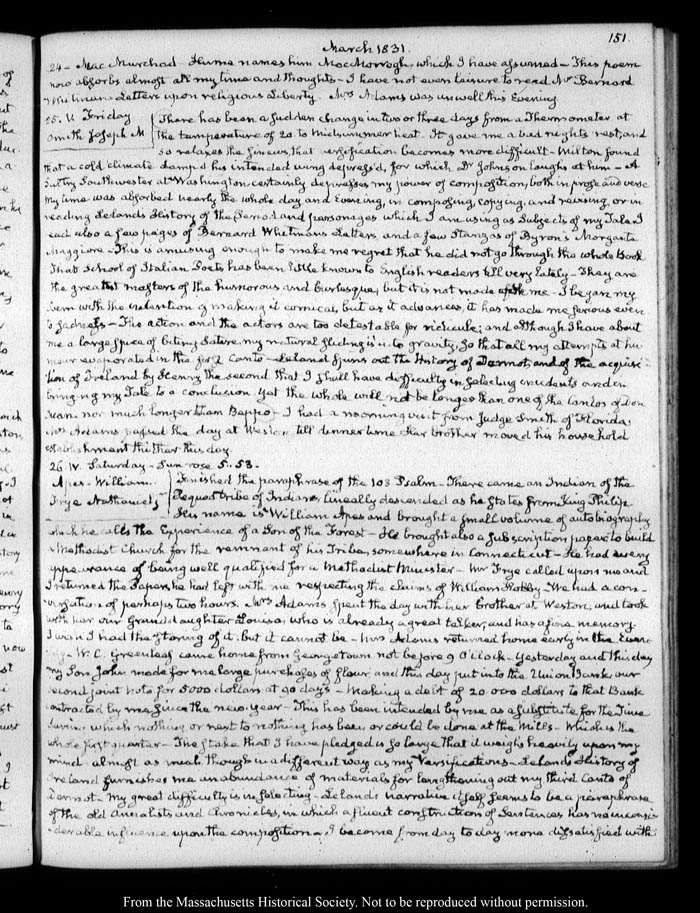 151
March 1831.
24 – Mac Murchad – Hume names him MacMorrogh, which I have assumed – This poem
now absorbs almost all my time and thoughts – I have not even leisure to read Mr Bernard
Whitman's Letters upon religious Liberty. Mrs Adams was unwell this Evening
25. V. Friday
Smith Joseph M
There has been a sudden change in two or three days from a Thermometer at
the temperature of 20. to Midsummer heat. It gave me a bad night's rest, and
so relaxes the sinews, that versification becomes more difficult – Milton found
that a cold climate damp'd his intended wing depress'd, for which Dr Johnson laughs at him – A
sultry Southwester at Washington certainly depresses my power of composition, both in prose and verse
My time was absorbed nearly the whole day and Evening, in composing, copying, and revising, or in
reading Leland's History of the Period and personages which I am using as subjects of my Tale. I
read also a few pages of Bernard Whitman's Letters and a few Stanzas of Byron's Morgante
Maggiore – This is amusing enough to make me regret that he did not go through the whole Book
That School of Italian Poets has been little known to English readers till very lately – They are
the greatest masters of the humorous and burlesque, but it is not made for me. I began my
Poem with the intention of making it comical, but as it advances, it has made me serious even
to sadness – The action and the actors are too detestable for ridicule; and although I have about
me a large spice of biting Satire, my natural gliding is into gravity, so that all my attempts at hu-
mour evaporated in the first Canto – Leland spins out the History of Dermot, and of the acquisi-
tion of Ireland by Henry the second that I shall have difficulty in selecting incidents and in
bringing my Tale to a conclusion. Yet the whole will not be longer than one of the Cantos of Don
Juan. nor much longer than Beppo – I had a morning visit from Judge Smith of Florida.
Mrs Adams passed the day at Weston till dinner time. Her brother moved his household
establishment thither this day.
26. IV. Saturday – Sun rose 5. 53.
Apes – William.
Frye Nathaniel
Finished the paraphrase of the 103 Psalm – There came an Indian of the
Pequod tribe of Indians, lineally descended as he states from King Philip
His name is William Apes and brought a small volume of autobiography
which he calls the Experience of a Son of the Forest – He brought also a subscription paper to build
a Methodist Church for the remnant of his Tribe, somewhere in Connecticut – He had every
appearance of being well qualified for a Methodist Minister – Mr Frye called upon me and
I returned the Papers he had left with me respecting the claims of William – We had a con-
versation of perhaps two hours. Mrs Adams spent the day with her brother at Weston, and took
with her our Granddaughter Louisa, who is already a great talker, and has a fine memory
I wish I had the storing of it. but it cannot be – Mrs Adams returned home early in the Even-
ing – W. C. Greenleaf came home from Georgetown not before 9 O'Clock – Yesterday and this day
my Son John made for me large purchases of flour, and this day put into the Union Bank our
second joint note for 5000 dollars at 90 days – Making a debt of 20.000 dollars to that Bank
contracted by me since the new-year – This has been intended by me as a substitute for the Time
during which nothing or next to nothing has been or could be done at the Mills – Which is the
whole first quarter – The stake that I have pledged is so large, that it weighs heavily upon my
mind – almost as much though in a different way as my Versifications – Leland's History of
Ireland furnishes me an abundance of materials for lengthening out my third Canto of
Dermot – My great difficulty is in selecting – Leland's narrative itself seems to be a paraphrase
of the old Annalists and Chronicles, in which a fluent construction of Sentences has no inconsi-
-derable influence upon the composition – I become from day to day more dissatisfied with
From the Massachusetts Historical Society. Not to be reproduced without permission.